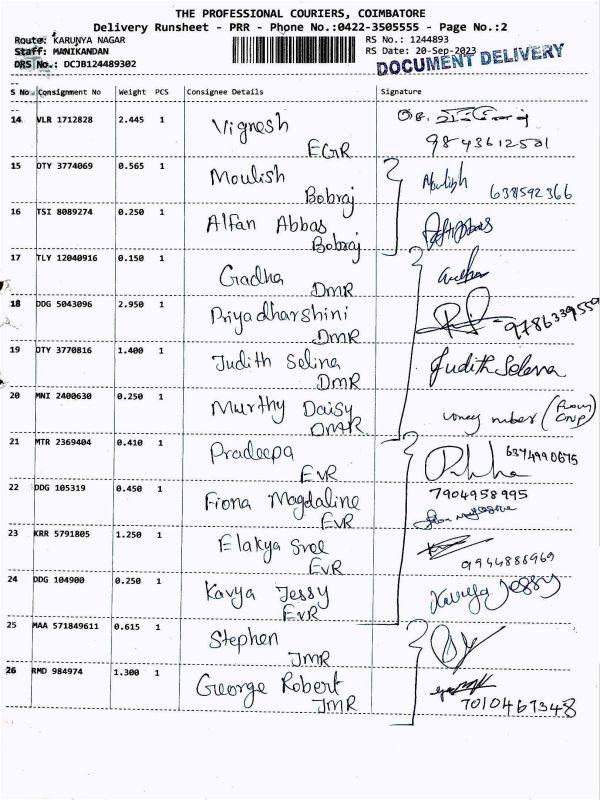 THE PROFESSIONAL COURIERS, COIMBATORE
Delivery Runsheet - PRR - Phone No.:0422-3505555 - Page No.:2
Route: KARUNYA NAGAR RS No.: 1244893
Staff: MANIKANDAN RS Date: 20-Sep-2023
DRS No.: DCJB124489302
DOCUMENT DELIVERY
S No Consignment No Weight PCS Consignee Details Signature
14 VLR 1712828 2.445 1 Vignesh
EGR 9843612501
15 OTY 3774069 0.565 1 Moulish
Bobraj 638592366
16 TSI 8089274 0.250 1 Alfan Abbas
Bobraj
17 TLY 12040916 0.150 1 Gadha
DMR
18 DDG 5043096 2.950 1 Priyadharshini 9786339559
DMR
19 OTY 3770816 1.400 1 Judith Selina Judith Selena
DMR
20 MNI 2400630 0.250 1 Murthy Daisy
DMR
21 MTR 2369404 0.410 1 Pradeepa 6374990675
EVR
22 DDG 105319 0.450 1 Fiona Magdaline 7904958995
EVR
23 KRR 5791805 1.250 1 Elakya Sree
EVR 9944886969
24 DDG 104900 0.250 1 Kavya Jessy Kavya Jessy
EVR
25 MAA 571849611 0.615 1 Stephen
JMR
26 RMD 984974 1.300 1 George Robert
JMR 7010467348